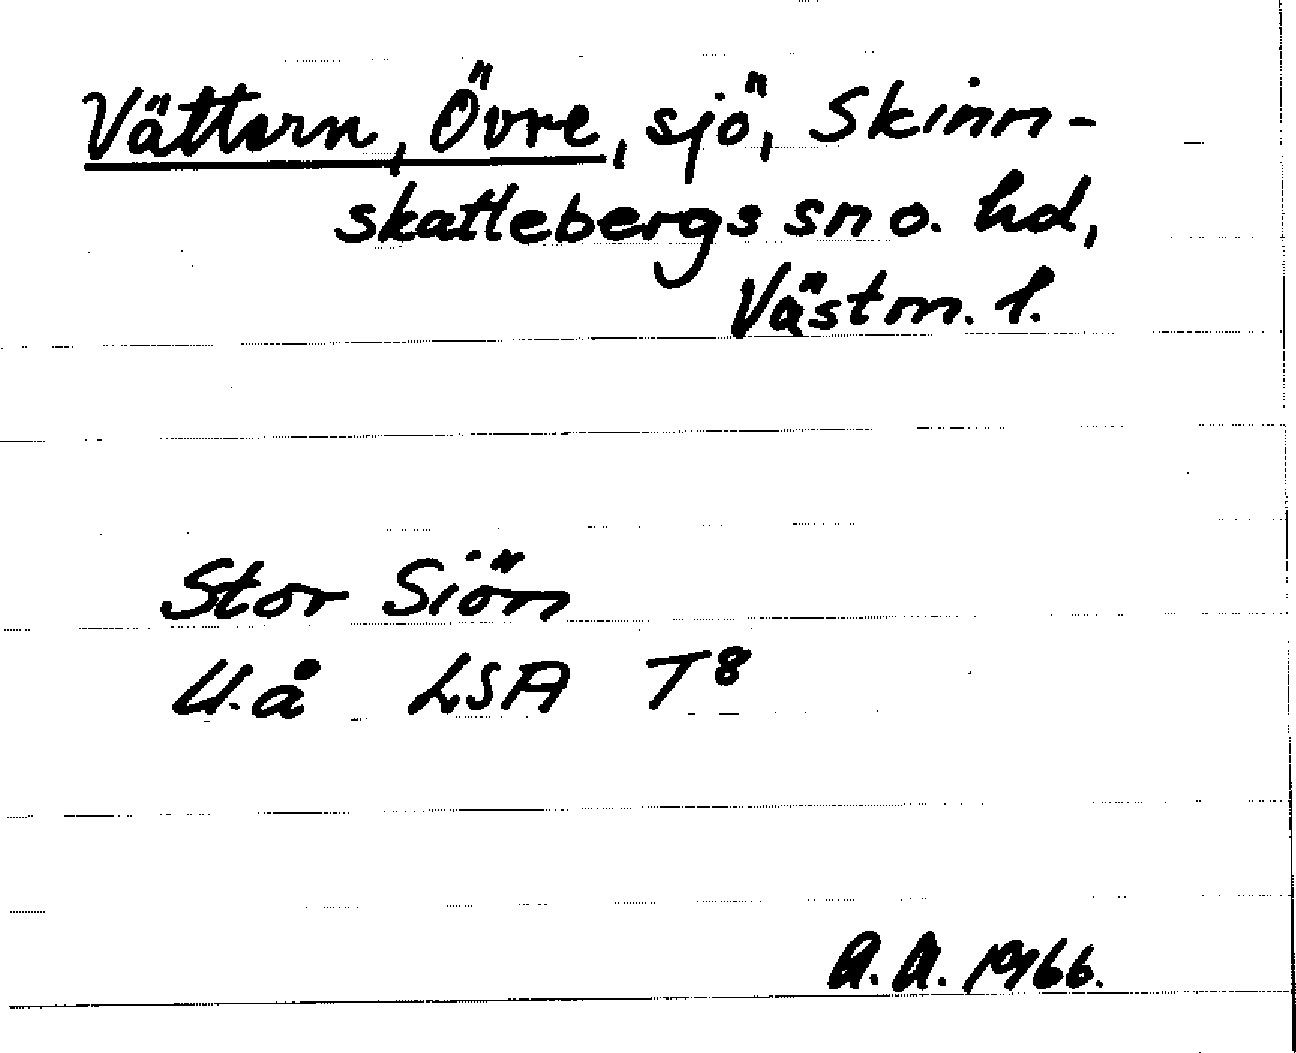 Vättern, Övre, sjö, Skinn-
skattebergs sn o. hd,
Västm. l.
Stor Siön
U.å LSA T8
A.A. 1966.